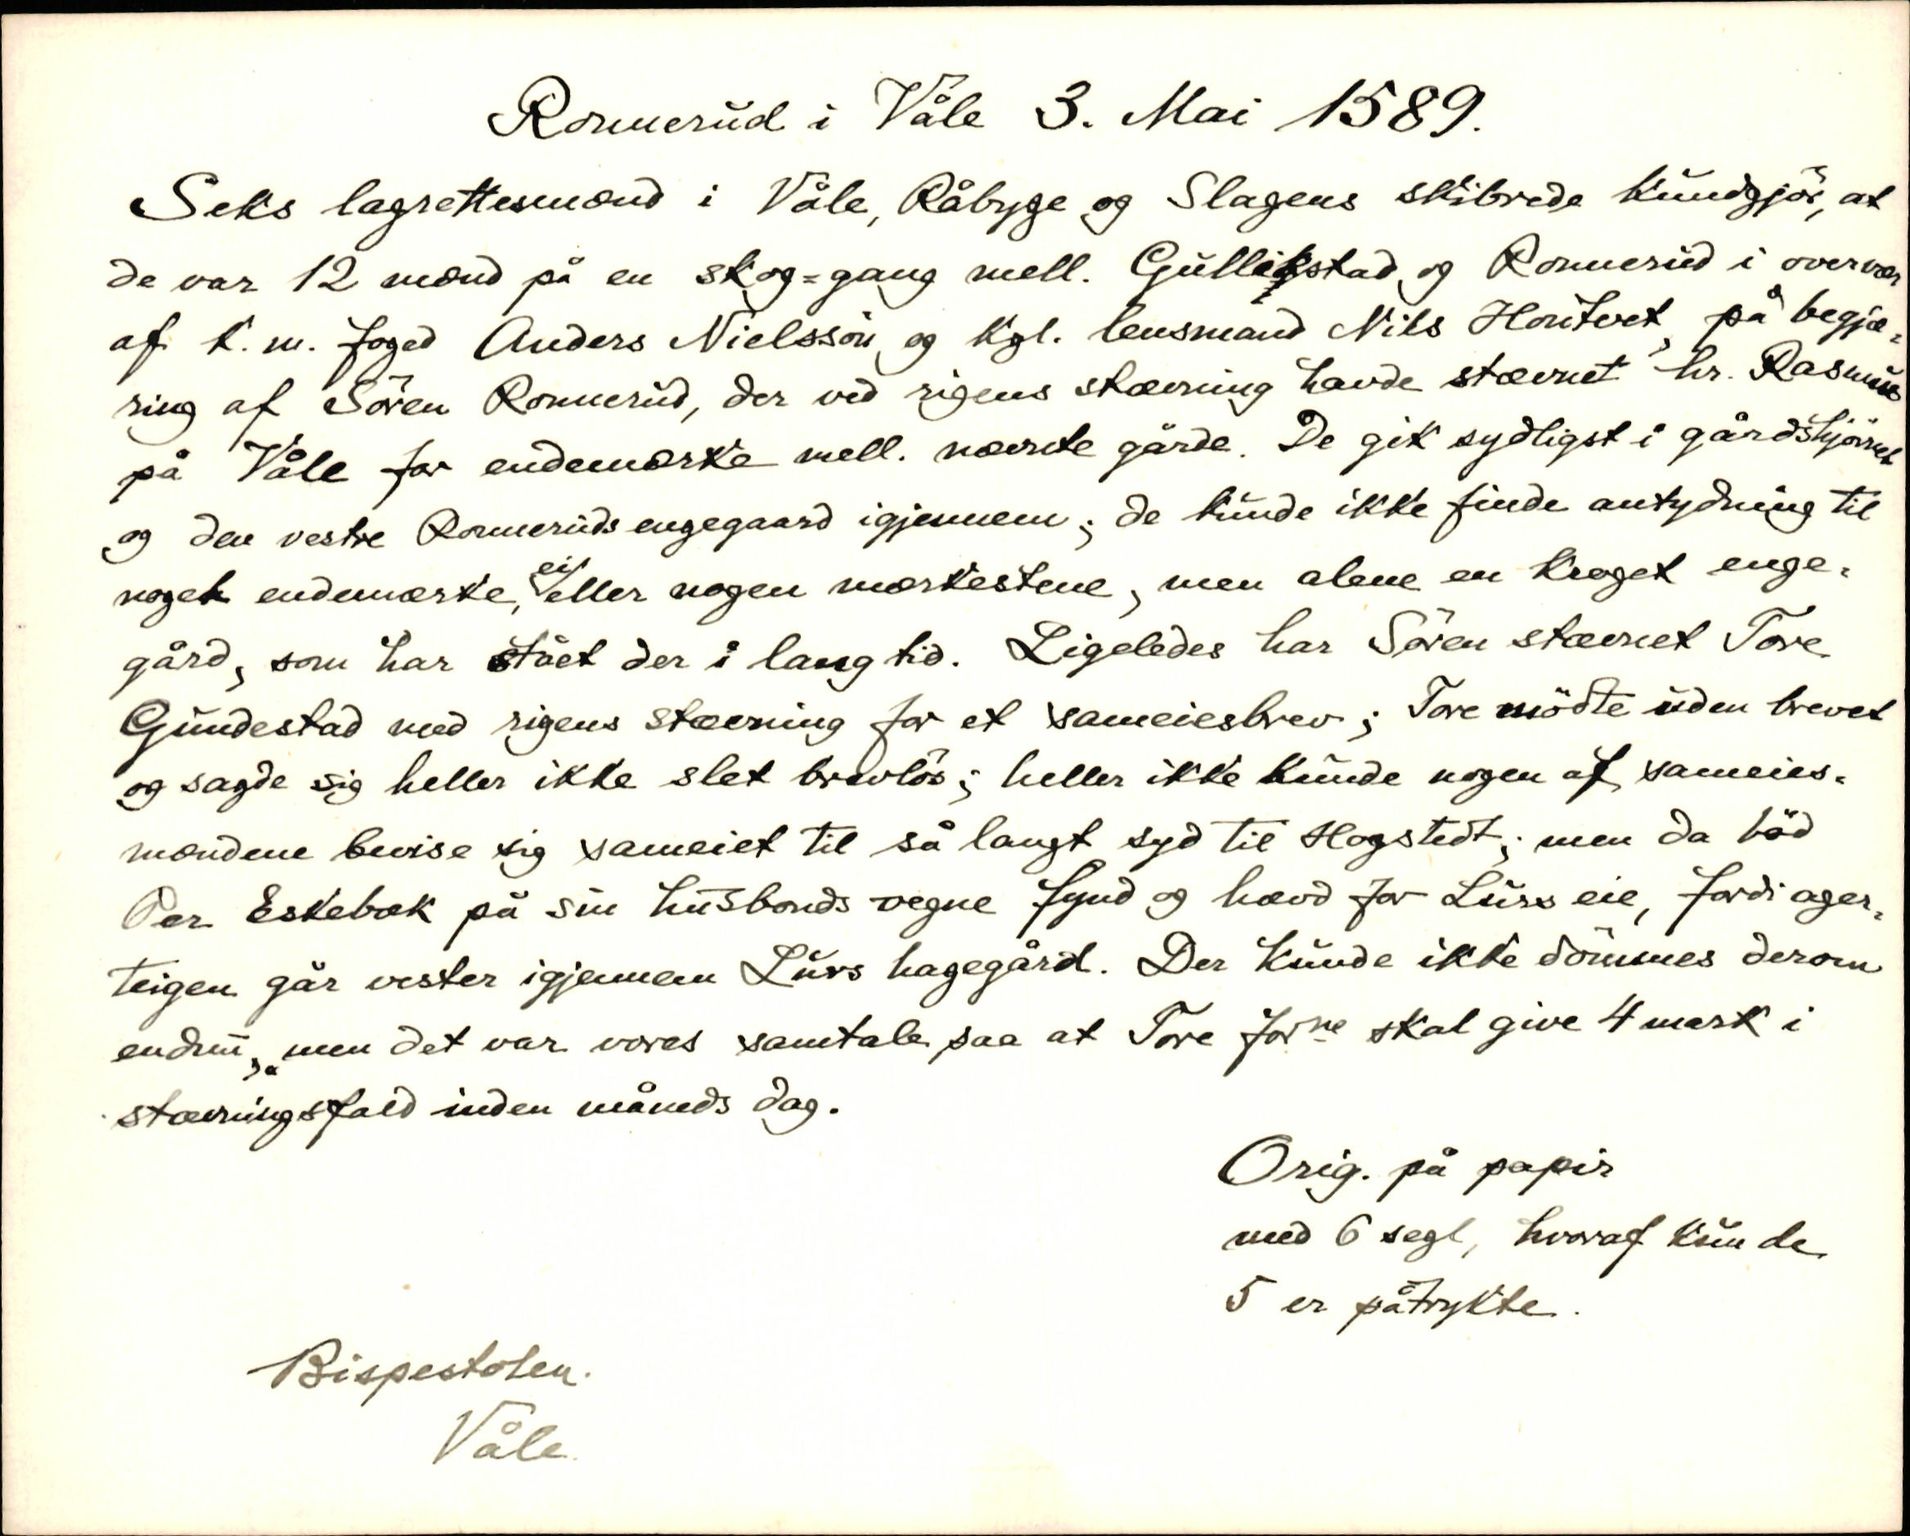 Ronnerud i Våle 3. Mai 1589.
Seks lagrettesmænd i Våle, Råbyge og Slagens skibrede kundgjör, at
de var 12 mænd på en skog=gang mell. Gullikstad og Ronnerud i overvær
af k. m. foged Anders Nielssön og kgl. lensmand Nils Hontvet, på begjæ-
ring af Sören Ronnerud, der ved rigens stævning havde stævnet hr. Rasmus
på Våle for endemærke mell. nævnte gårde. De gik sydligst i gårdshjörnet
og den vestre Ronneruds engegaard igjennem; de kunde ikke finde antydning til
noget endemærke, ei eller nogen mærkestene, men alene en kroget enge-
gård, som har stået der i lang tid. Ligeledes har Sören stævnet Tore
Gundestad med rigens stævning for et sameiesbrev; Tore mödte uden brevet
og sagde sig heller ikke slet brevlös; heller ikke kunde nogen af sameies-
mændene bevise sig sameiet til så langt syd til Hogstedt; men da böd
Per Eskebæk på sin husbonds vegne fynd og hævd for Lurs eie, fordi ager-
teigen går vester igjennem Lurs hagegård. Der kunde ikke dömmes derom
endnu, „men det var vores samtale saa at Tore forne skal give 4 mark i
stævningsfald inden måneds dag.
Orig. på papir
med 6 segl, hvoraf kun de
5 er påtrykte.
Bispestolen.
Våle.